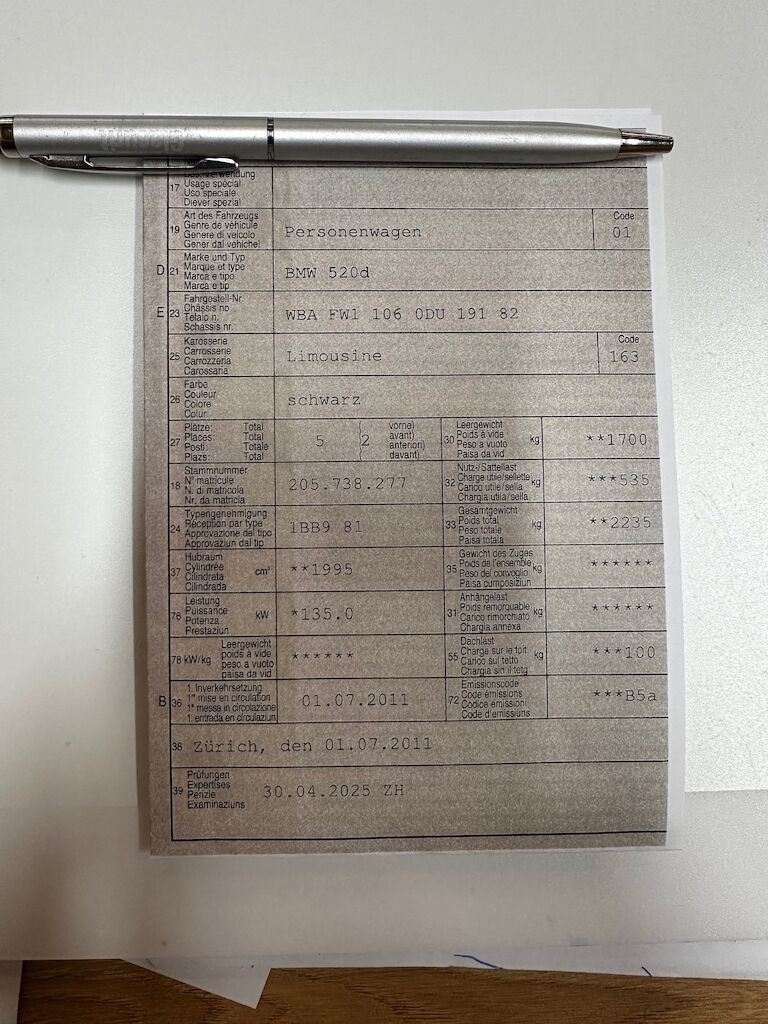 17 Bes. Verwendung
Usage spécial
Uso speciale
Diever spezial
19 Art des Fahrzeugs
Genre de véhicule
Genere di veicolo
Gener dal vehichel
Personenwagen
Code
01
D 21 Marke und Typ
Marque et type
Marca e tipo
Marca e tip
BMW 520d
E 23 Fahrgestell-Nr.
Châssis no
Telaio n.
Schassis nr.
WBA FW1 106 0DU 191 82
25 Karosserie
Carrosserie
Carrozzeria
Carossaria
Limousine
Code
163
26 Farbe
Couleur
Colore
Colur
schwarz
27 Plätze: Total
Places: Total
Posti: Totale
Plazs: Total
5 (2 vorne)
avant)
anteriori)
davant)
30 Leergewicht
Poids à vide
Peso a vuoto
Paisa da vid
kg
**1700
18 Stammnummer
N° matricule
N. di matricola
Nr. da matricla
205.738.277
32 Nutz-/Sattellast
Charge utile/sellette
Carico utile/sella
Chargia utila/sella
kg
***535
24 Typengenehmigung
Réception par type
Approvazione del tipo
Approvaziun dal tip
1BB9 81
33 Gesamtgewicht
Poids total
Peso totale
Paisa totala
kg
**2235
37 Hubraum
Cylindrée
Cilindrata
Cilindrada
cm³
**1995
35 Gewicht des Zuges
Poids de l'ensemble
Peso del convoglio
Paisa cumposiziun
kg
******
76 Leistung
Puissance
Potenza
Prestaziun
kW
*135.0
31 Anhängelast
Poids remorquable
Carico rimorchiato
Chargia annexa
kg
******
78 kW/kg Leergewicht
poids à vide
peso a vuoto
paisa da vid
******
55 Dachlast
Charge sur le toit
Carico sul tetto
Chargia sin il tetg
kg
***100
B 36 1. Inverkehrsetzung
1re mise en circulation
1a messa in circolazione
1. entrada en circulaziun
01.07.2011
72 Emissionscode
Code émissions
Codice emissioni
Code d'emissiuns
***B5a
38 Zürich, den 01.07.2011
39 Prüfungen
Expertises
Perizie
Examinaziuns
30.04.2025 ZH